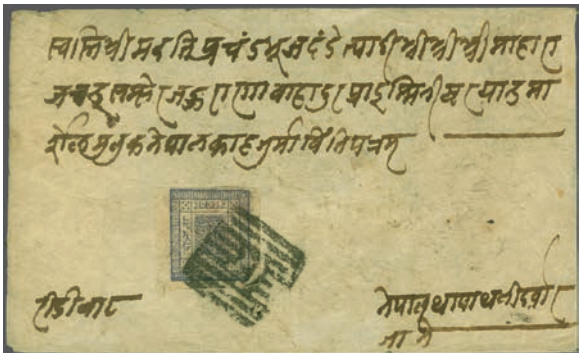 स्वास्ति श्रीमदति प्रचंड भूजदंडेत्यादी श्री श्री श्री माहारा
ज चन्द्र सम्सेर जङ्ग राणा बाहादुर प्राईम्मिनीष्टर यान्ड मा
मुलुक नेपालका हजुरमा बिंतिपत्रम्
रीडी बाट
नेपाल् थापाथली दर्वार
जाने